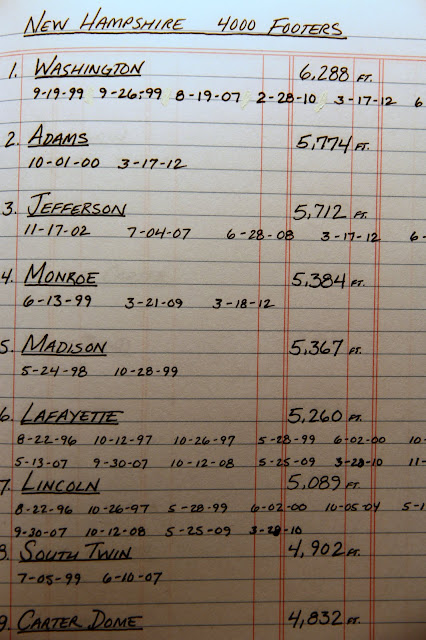 NEW HAMPSHIRE 4000 FOOTERS
1. WASHINGTON 6,288 FT.
9-19-99 9-26-99 8-19-07 2-28-10 3-17-12 6
2. ADAMS 5,774 FT.
10-01-00 3-17-12
3. JEFFERSON 5,712 FT.
11-17-02 7-04-07 6-28-08 3-17-12 6-
4. MONROE 5,384 FT.
6-13-99 3-21-09 3-18-12
5. MADISON 5,367 FT.
5-24-98 10-28-99
6. LAFAYETTE 5,260 FT.
8-22-96 10-12-97 10-26-97 5-28-99 6-02-00 10-
5-13-07 9-30-07 10-12-08 5-25-09 3-28-10 11-
7. LINCOLN 5,089 FT.
8-22-96 10-26-97 5-28-99 6-02-00 10-05-04 5-1
9-30-07 10-12-08 5-25-09 3-28-10
8. SOUTH TWIN 4,902 FT.
7-05-99 6-10-07
9. CARTER DOME 4,832 FT.